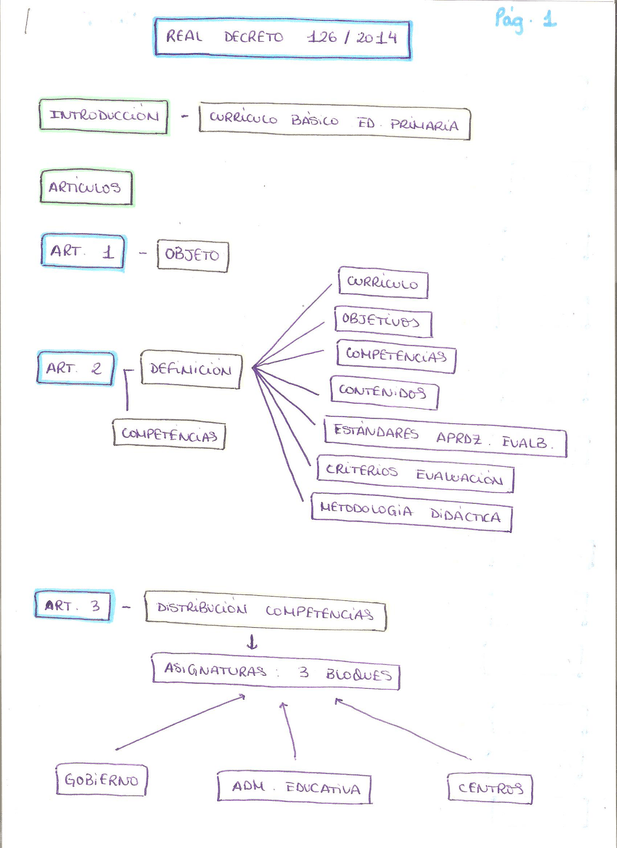 Pág. 1
REAL DECRETO 126/2014
INTRODUCCIÓN - CURRÍCULO BÁSICO ED. PRIMARIA
ARTÍCULOS
ART. 1 - OBJETO
CURRÍCULO
OBJETIVOS
COMPETENCIAS
ART. 2 - DEFINICIÓN
CONTENIDOS
COMPETENCIAS
ESTÁNDARES APRDZ. EVALB.
CRITERIOS EVALUACIÓN
METODOLOGÍA DIDÁCTICA
ART. 3 - DISTRIBUCIÓN COMPETENCIAS
ASIGNATURAS : 3 BLOQUES
GOBIERNO
ADM. EDUCATIVA
CENTROS